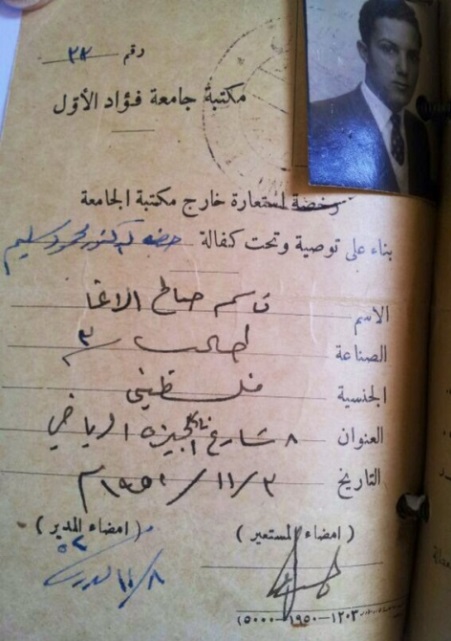 رقم ٢٢
مكتبة جامعة فؤاد الأول
رخصة استعارة خارج مكتبة الجامعة
بناء على توصية وتحت كفالة حضرة الدكتور محمود سليم
الاسم قاسم صالح الاغا
الصناعة طالب
الجنسية فلسطيني
العنوان ٨ شارع نادي الجيزة الرياضي
التاريخ ٢/١١/١٩٥١م
( امضاء المستعير ) ( امضاء المدير )
١٢٠٣-١٩٥٠-٥٠٠٠)